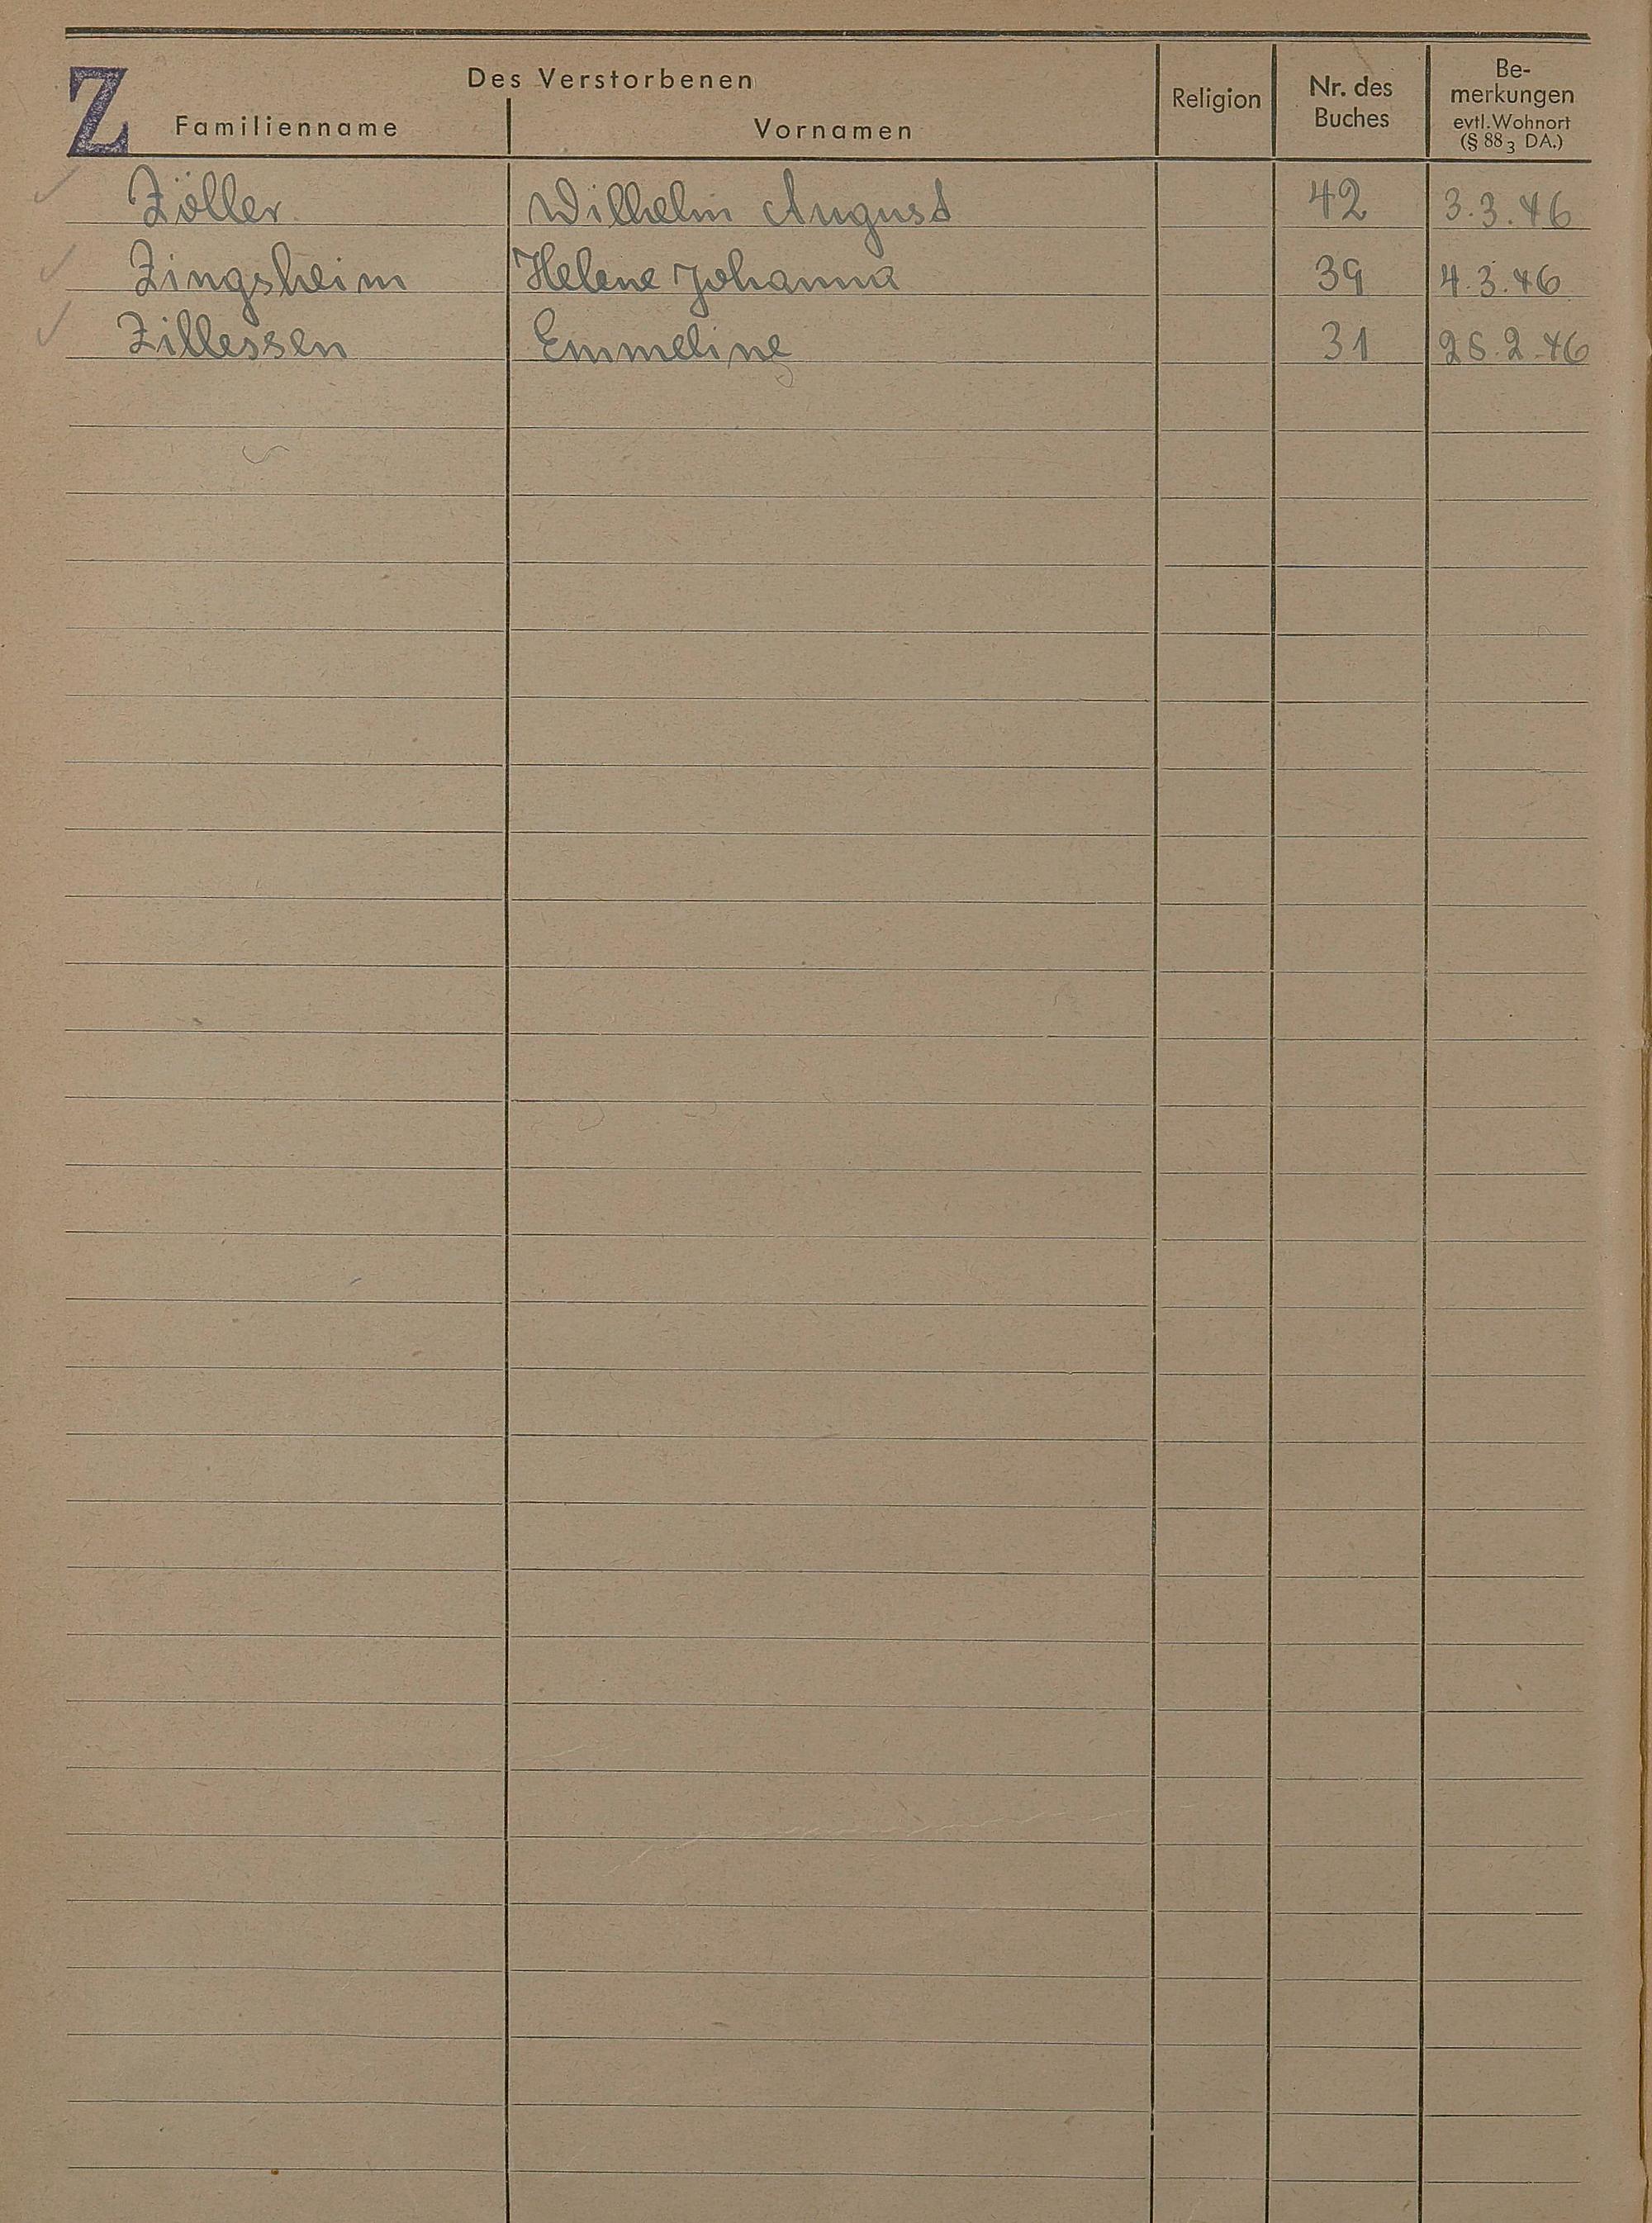 Z
Des Verstorbenen
Familienname Vornamen Religion Nr. des Buches Be-merkungen evtl. Wohnort (§ 88 3 DA.)
Zöller Wilhelm August 42 3.3.46
Zingsheim Helene Johanna 39 4.3.46
Zillessen Emmeline 31 28.2.46